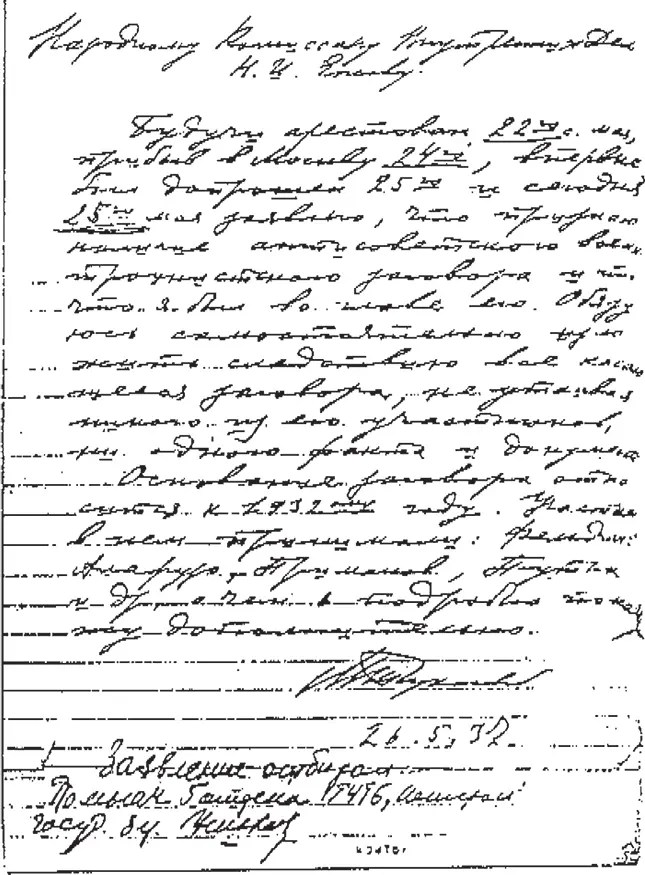 Народному Комиссару Внутренних Дел
Н. И. Ежову.
Будучи арестован 22го с. мая,
прибыв в Москву 24го, впервые
был допрошен 25го и сегодня
26го мая заявляю, что признаю
наличие антисоветского воен.
троцкистского заговора и то,
что я был во главе его. Обязу
юсь самостоятельно изло
жить следствию все касаю
щееся заговора, не утаивая
никого из его участников,
ни одного факта и документа
Основание заговора отно
сится к 1932му году. Участие
в нем принимали: Фельдман
Алафузо, Примаков, Путна
и др., о чем я подробно пока
жу дополнительно.
26.5.37.
Заявление отобрал
Помнач 5 отдела
госуд. Ушаков